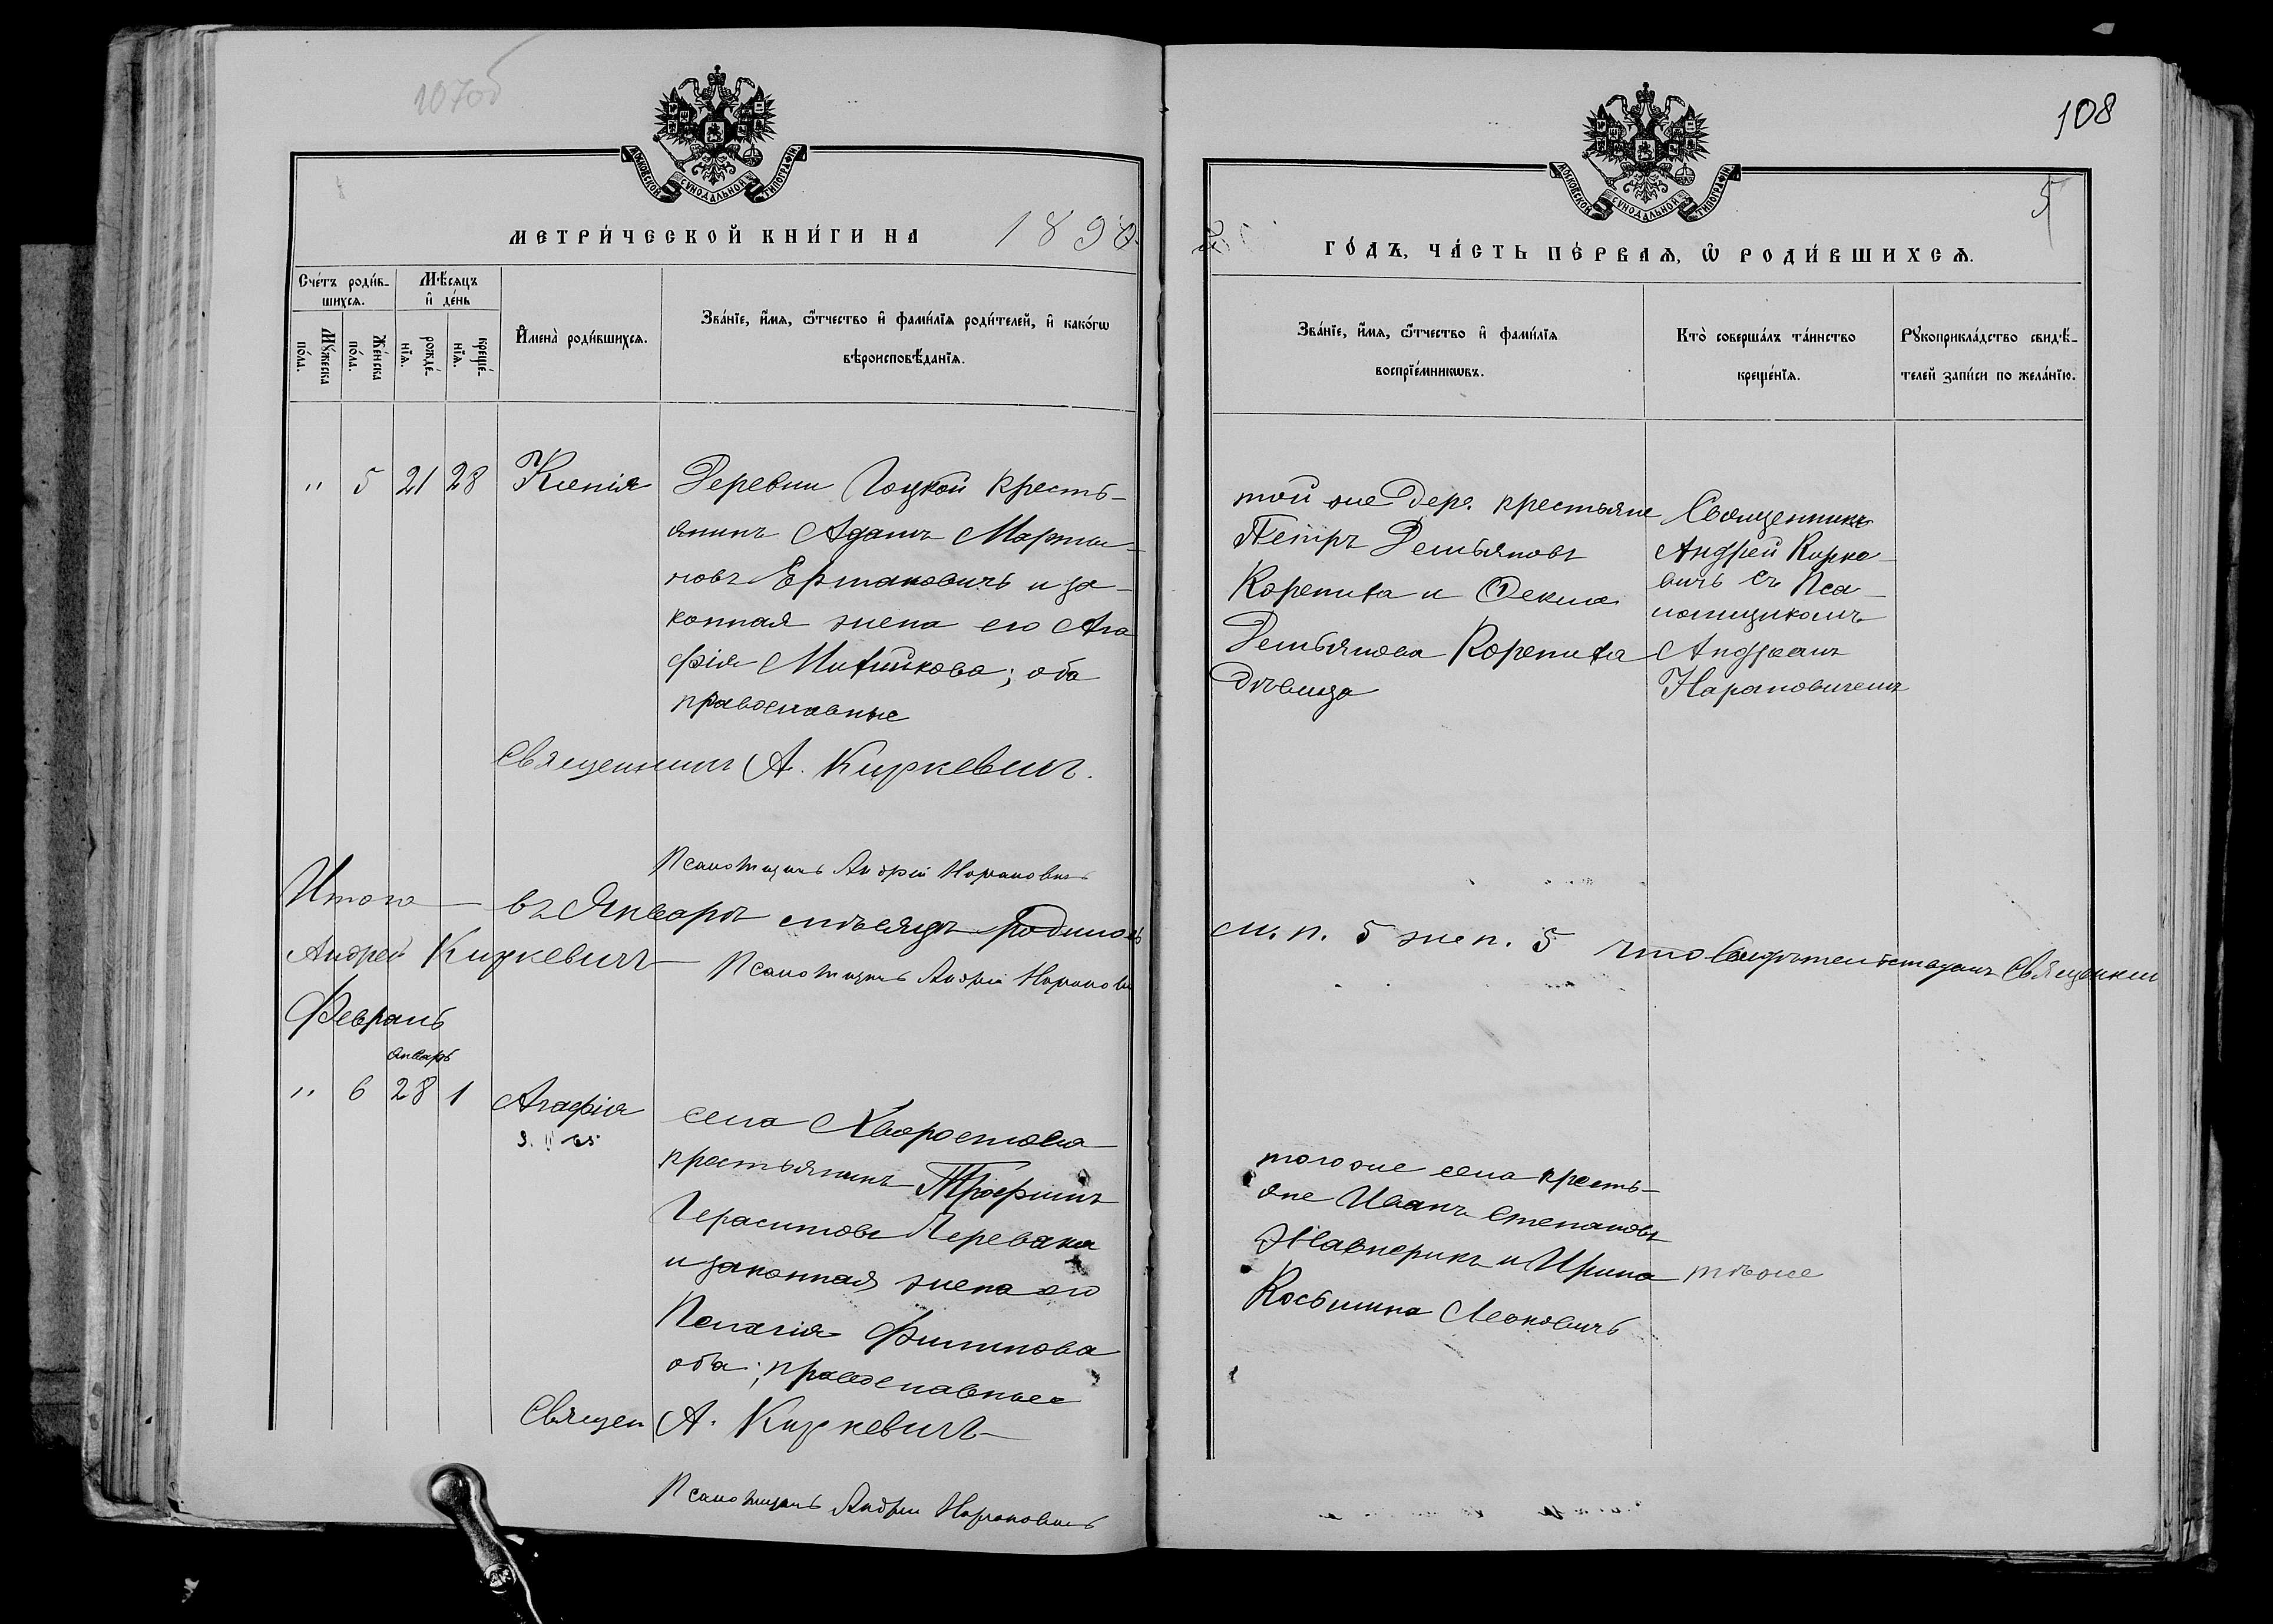 107об
МОСКОВСКОЙ СѴНОДАЛЬНОЙ ТИПОГРАФІИ
МЕТРИ́ЧЕСКОЙ КНИ́ГИ НА 1890
Сче́тъ роди́в-
шихсѧ.
Мѣ́сѧцъ
и҆ де́нь
Мꙋ́жеска
по́ла.
Же́нска
по́ла.
рожде́-
нїѧ.
креще́-
нїѧ.
И҆мена̀ роди́вшихсѧ.
Зва́нїе, и҆́мѧ, ѻ҆́тчество и҆ фами́лїѧ роди́телей, и҆ како́гѡ
вѣроисповѣ́данїѧ.
" 5 21 28 Ксенія
Деревни Гоцкой кресть-
янинъ Адамъ Марты-
новъ Ермаковичъ и за-
конная жена его Ага
фія Матѳійкова; оба
православные
Священникъ А. Киркевичъ.
Псаломщикъ Андрей Наранович
Итого — въ Январѣ мѣсяцѣ родилось
Андрей Киркевичъ
Псаломщикъ Андрей Наранови
Февраль
январь
" 6 28 1 Агафія
села Хворостова
крестьянинъ Трофимъ
Герасимовъ Перевака
и законная жена его
Пелагія Филипова
оба; православные
Священ А. Киркевичъ
Псаломщикъ Андрей Наранович
108
5
МОСКОВСКОЙ СѴНОДАЛЬНОЙ ТИПОГРАФІИ
ГО́ДЪ, ЧА́СТЬ ПЕ́РВАѦ, Ѽ РОДИ́ВШИХСѦ.
Зва́нїе, и҆́мѧ, ѻ҆́тчество и҆ фами́лїѧ
воспрїе́мникѡвъ.
Кто̀ соверша́лъ та́инство
креще́нїѧ.
Рꙋкоприкла́дство свидѣ́-
телей за́писи по жела́нїю.
той же дер. крестьяне
Петръ Демьяновъ
Корепита и Ѳекла
Демьянова Корепита
дѣвица
Священникъ
Андрей Кирке-
вичъ съ Пса-
ломщикомъ
Андреемъ
Нарановичемъ
м. п. 5 жен. 5 что свидѣтельствуемъ Священник
тогоже села кресть-
яне Иванъ Степановъ
Жавнерикъ и Ирина
Косьмина Леоновичъ
тѣже